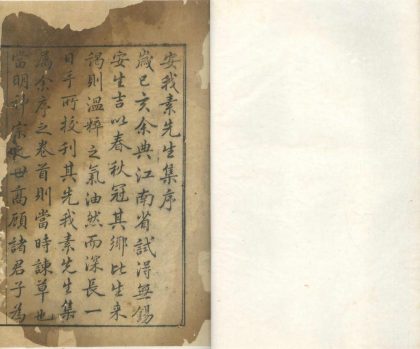 安我素先生集序
歲已亥余典江南省試得無錫
安生吉以春秋冠其鄉比生来
謁則溫粹之氣油然而深長一
日手所校刊其先我素先生集
属余序之卷首則當時諫草也
當明神宗
母高顧諸君子為